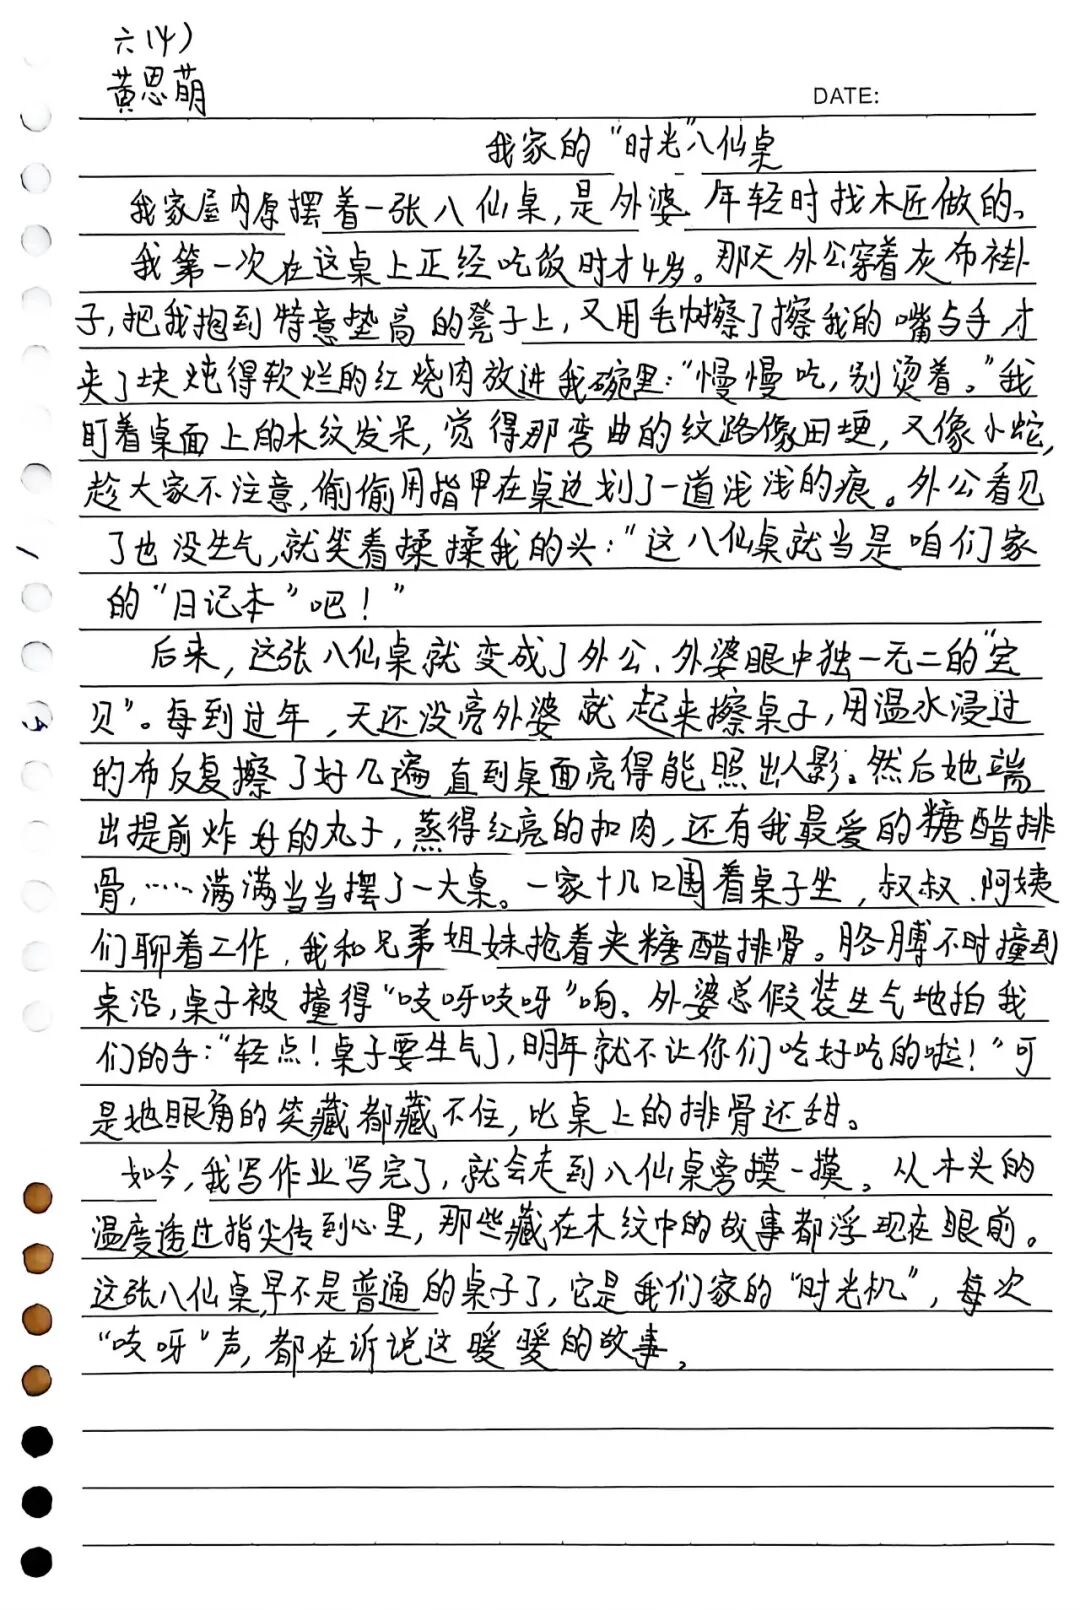 六(4)
黄思萌
DATE:
我家的“时光”八仙桌
我家屋内原摆着一张八仙桌,是外婆年轻时找木匠做的。
我第一次在这桌上正经吃饭时才4岁。那天外公穿着灰布褂
子,把我抱到特意垫高的凳子上,又用毛巾擦了擦我的嘴与手才
夹了块炖得软烂的红烧肉放进我碗里:“慢慢吃,别烫着。”我
盯着桌面上的木纹发呆,觉得那弯曲的纹路像田埂,又像小蛇,
趁大家不注意,偷偷用指甲在桌边划了一道浅浅的痕。外公看见
了也没生气,就笑着揉揉我的头:“这八仙桌就当是咱们家
的“日记本”吧!”
后来,这张八仙桌就变成了外公、外婆眼中独一无二的“宝
贝”。每到过年,天还没亮外婆就起来擦桌子,用温水浸过
的布反复擦了好几遍直到桌面亮得能照出人影。然后她端
出提前炸好的丸子,蒸得红亮的扣肉,还有我最爱的糖醋排
骨,……满满当当摆了一大桌。一家十几口围着桌子坐,叔叔、阿姨
们聊着工作,我和兄弟姐妹抢着夹糖醋排骨。胳膊不时撞到
桌沿,桌子被撞得“吱呀吱呀”响。外婆总假装生气地拍我
们的手:“轻点!桌子要生气了,明年就不让你们吃好吃的啦!”可
是她眼角的笑藏都藏不住,比桌上的排骨还甜。
如今,我写作业写完了,就会走到八仙桌旁摸一摸。从木头的
温度透过指尖传到心里,那些藏在木纹中的故事都浮现在眼前。
这张八仙桌早不是普通的桌子了,它是我们家的“时光机”,每次
“吱呀”声,都在诉说这暖暖的故事。